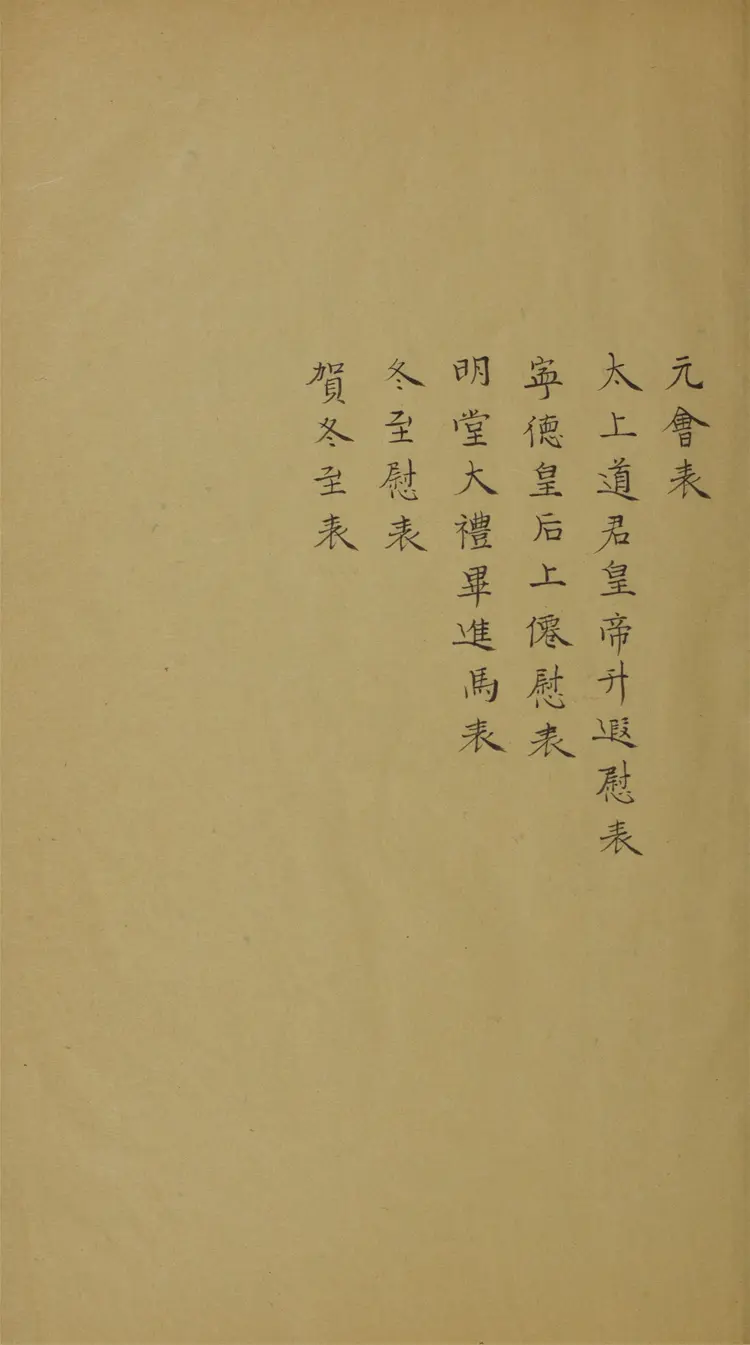 元會表
太上道君皇帝升遐慰表
寕德皇后上僊慰表
明堂大禮畢進馬表
冬至慰表
賀冬至表